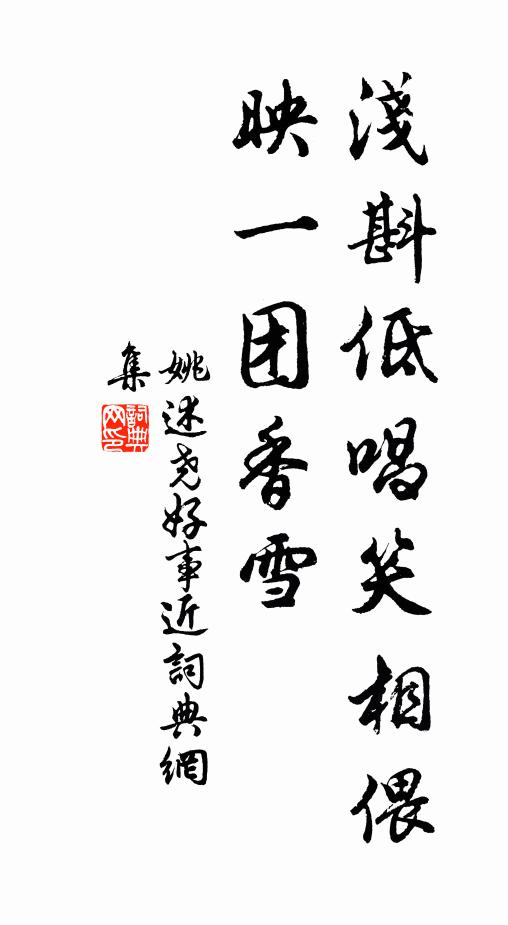 淺斟低唱笑相偎
映一团香雪
姚述尧好事近詞典網
集
詞典网印